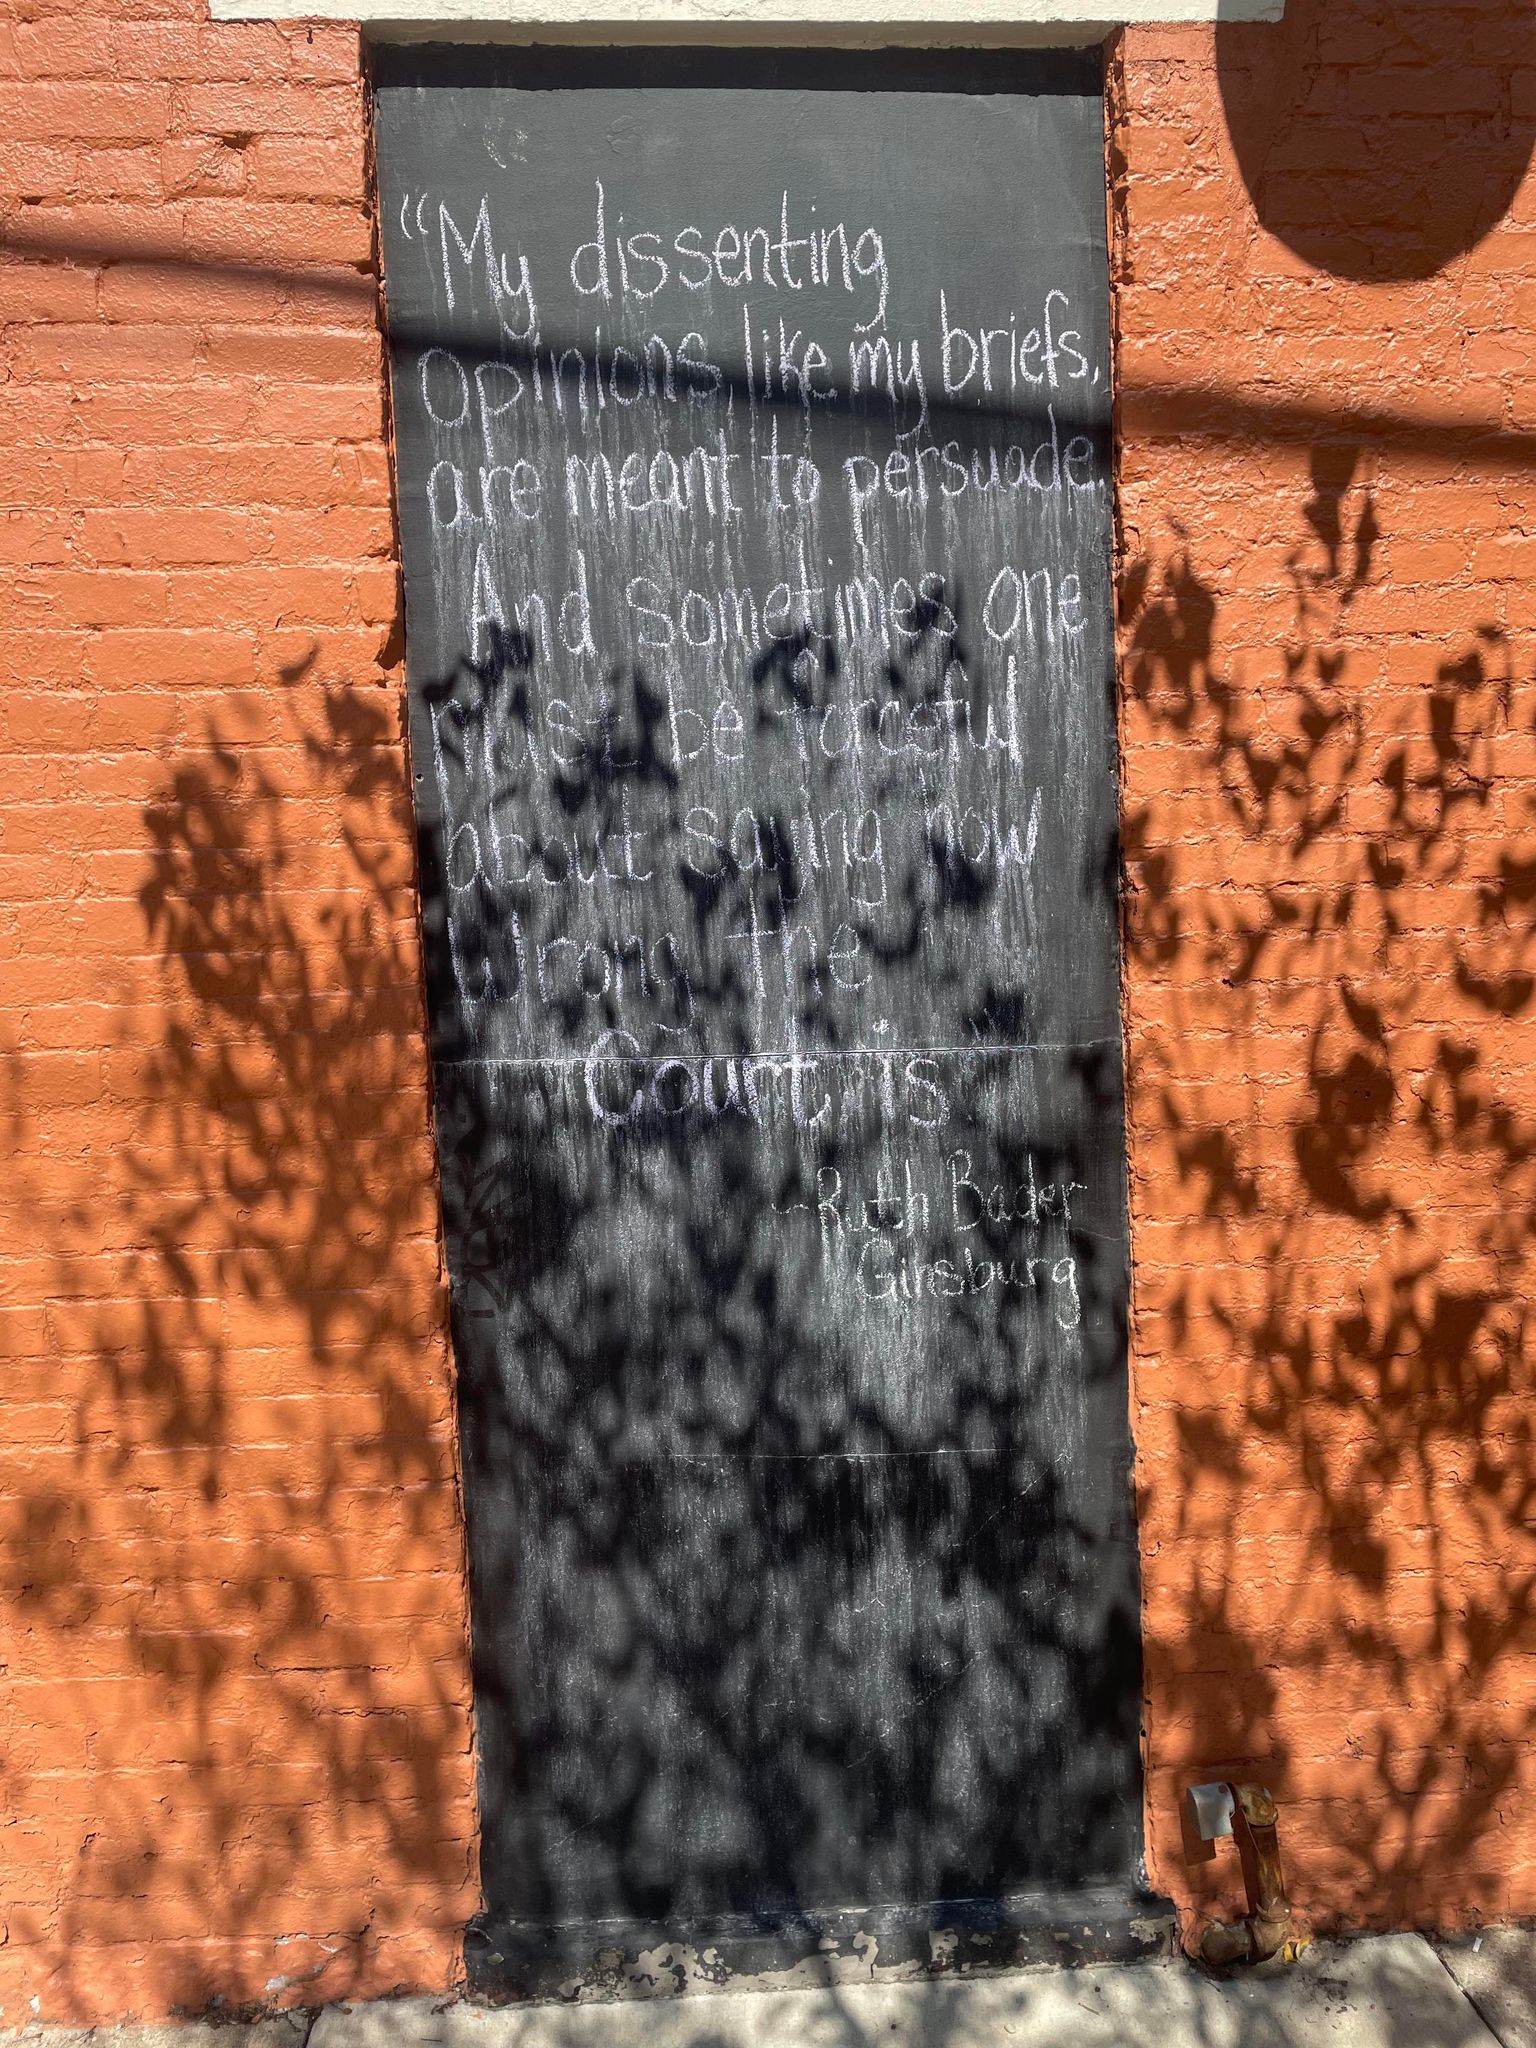 “My dissenting
opinions, like my briefs,
are meant to persuade.
And sometimes one
must be forceful
about saying how
wrong the
Court is
~Ruth Bader
Ginsburg